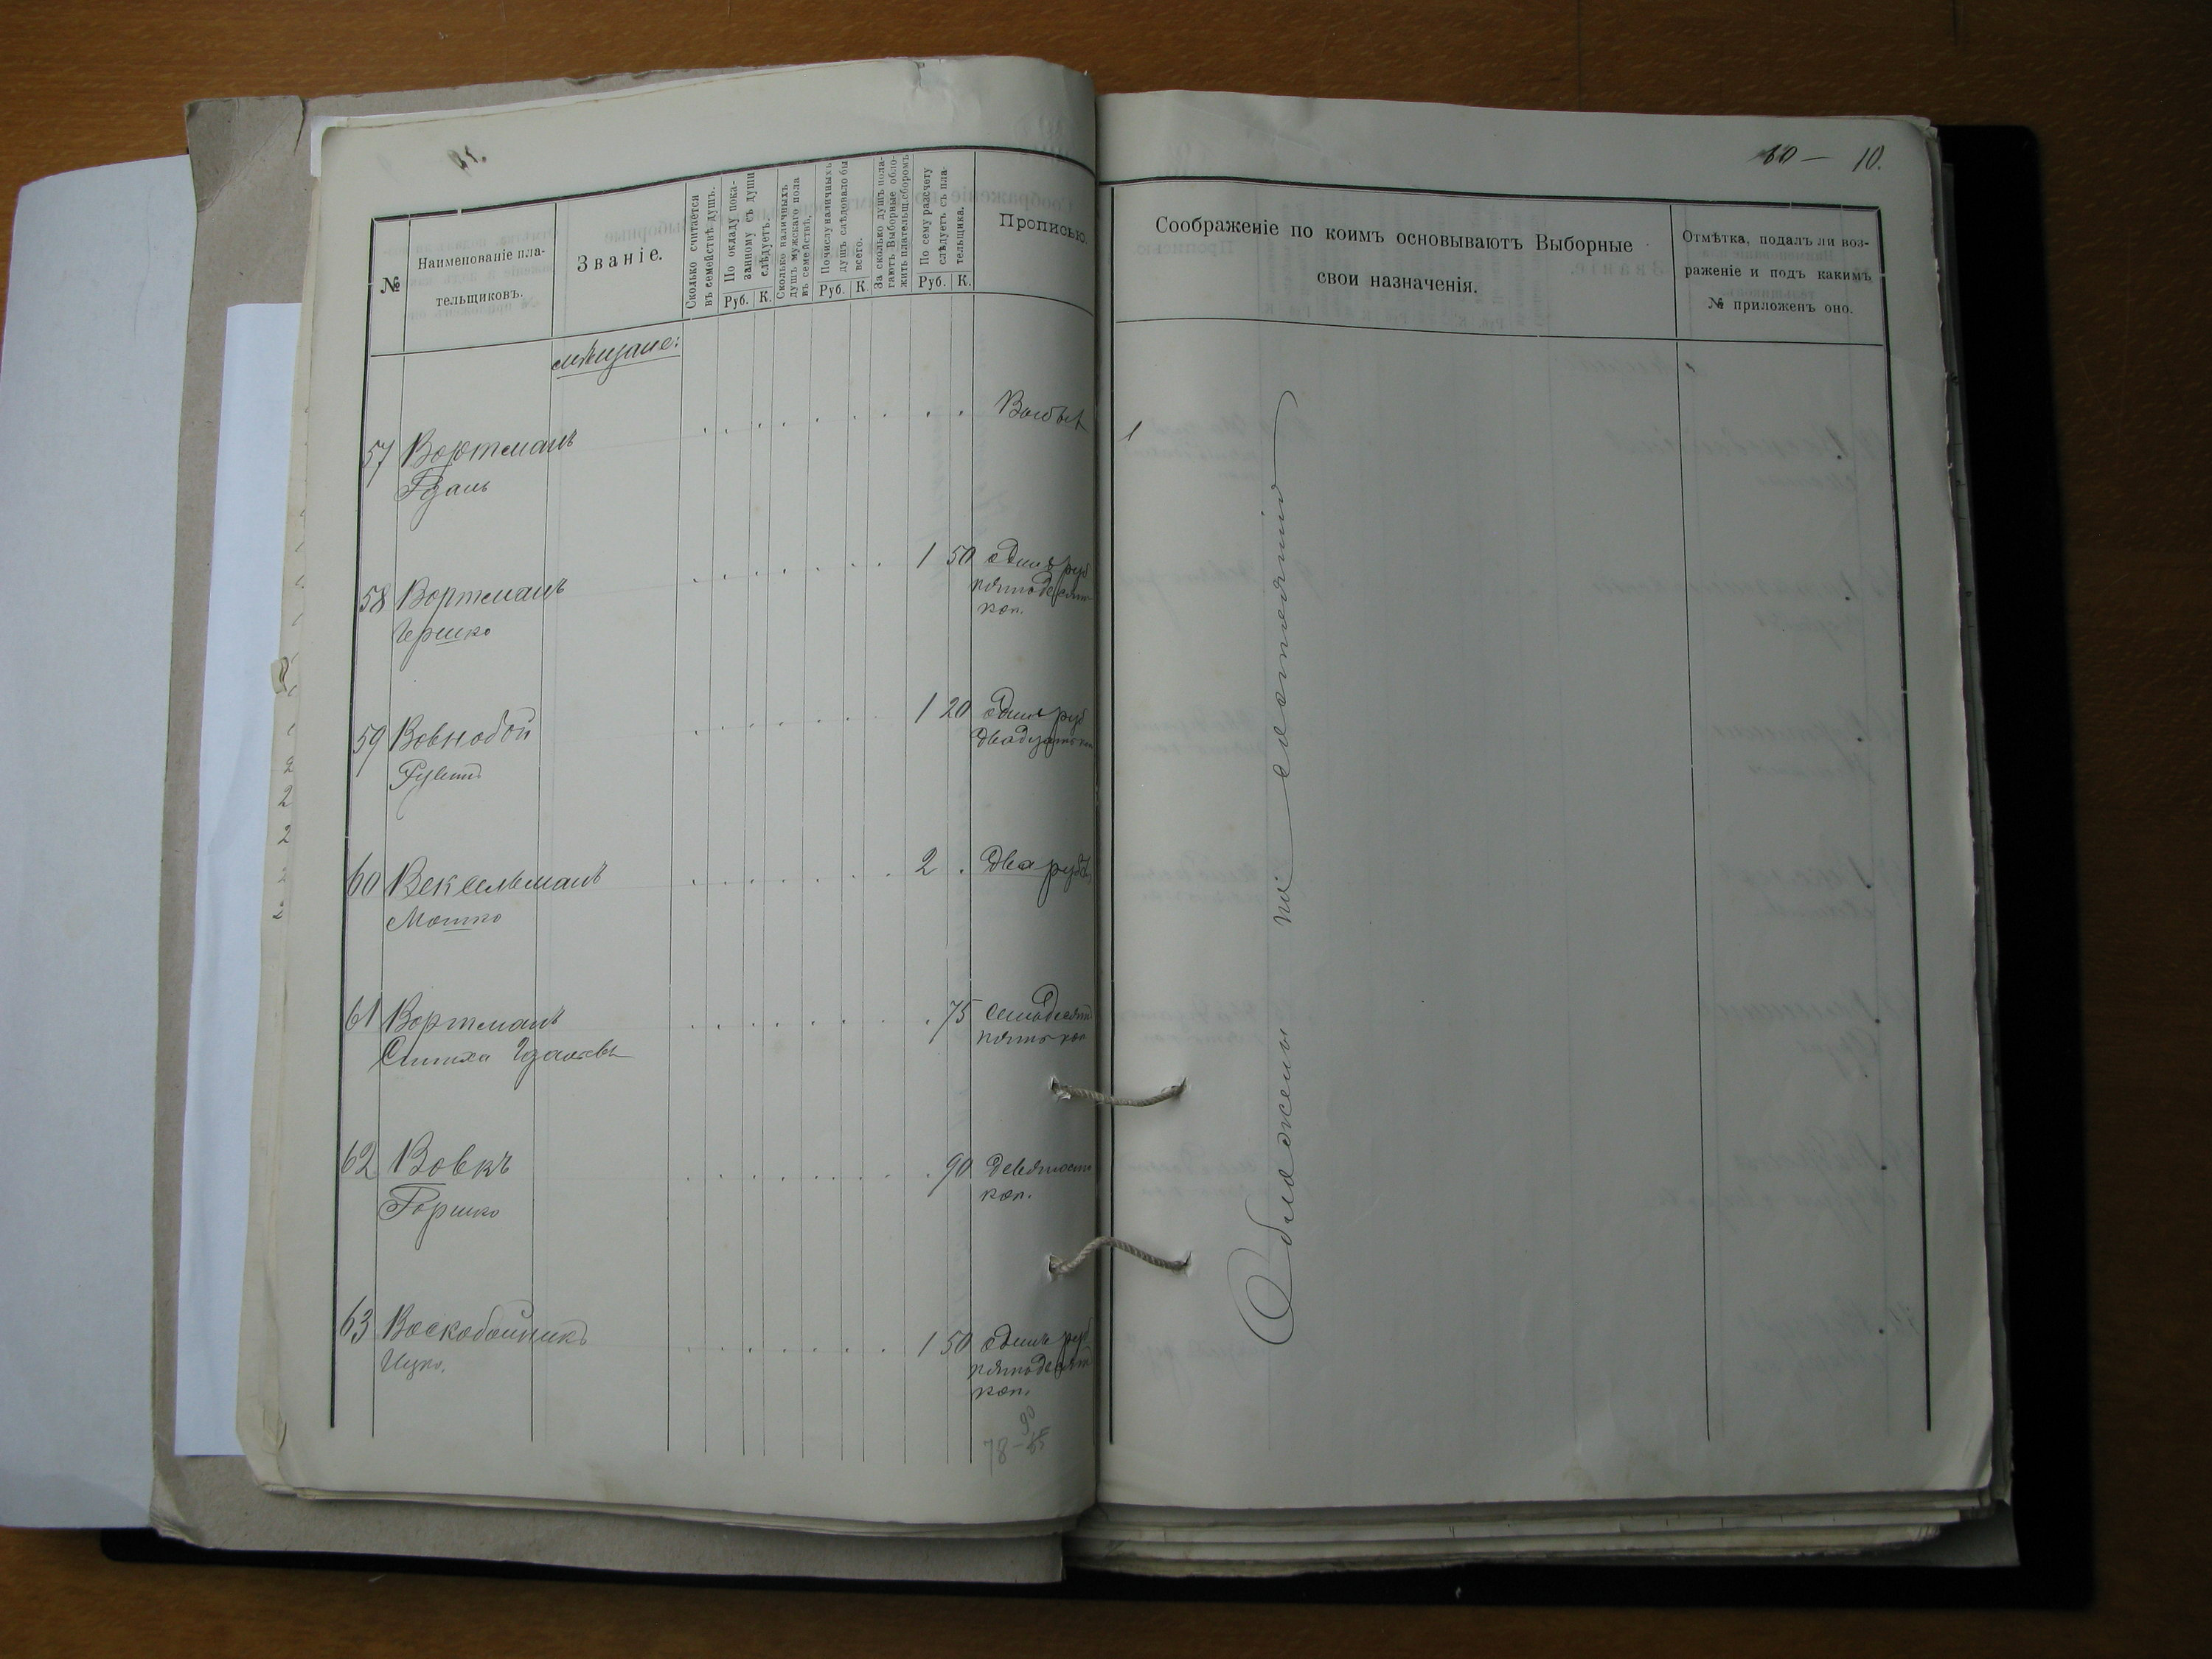 10.
№
Наименованіе пла-
тельщиковъ.
Званіе.
Сколько считается
въ семействѣ душъ.
По окладу пока-
занному съ души
слѣдуетъ.
Руб. К.
Сколько наличныхъ
душъ мужскаго пола
въ семействѣ.
По числу наличныхъ
душъ слѣдовало бы
всего.
Руб. К.
За сколько душъ пола-
гаютъ Выборные обло-
жить плательщ. сборомъ
По сему разсчету
слѣдуетъ съ пла-
тельщика.
Руб. К.
Прописью.
Соображеніе по коимъ основываютъ Выборные
свои назначенія.
Отмѣтка, подалъ ли воз-
раженіе и подъ какимъ
№ приложенъ оно.
мѣщане:
57 Вортманъ
58 Вортманъ 1 50 одинъ руб
Гершко пятьдесят
коп.
59 Вовнобой 1 20 один руб
Рувинъ двадцать коп
60 Вексельманъ 2 . два руб.
Мошко
61 Вортманъ 75 семьдесят
пять коп
62 Вовкъ 90 девяносто
Гершко коп.
63 Воскобойникъ 1 50 одинъ руб
Ицко. пятьдесят
коп.
90
78-
Обложены по состоянію